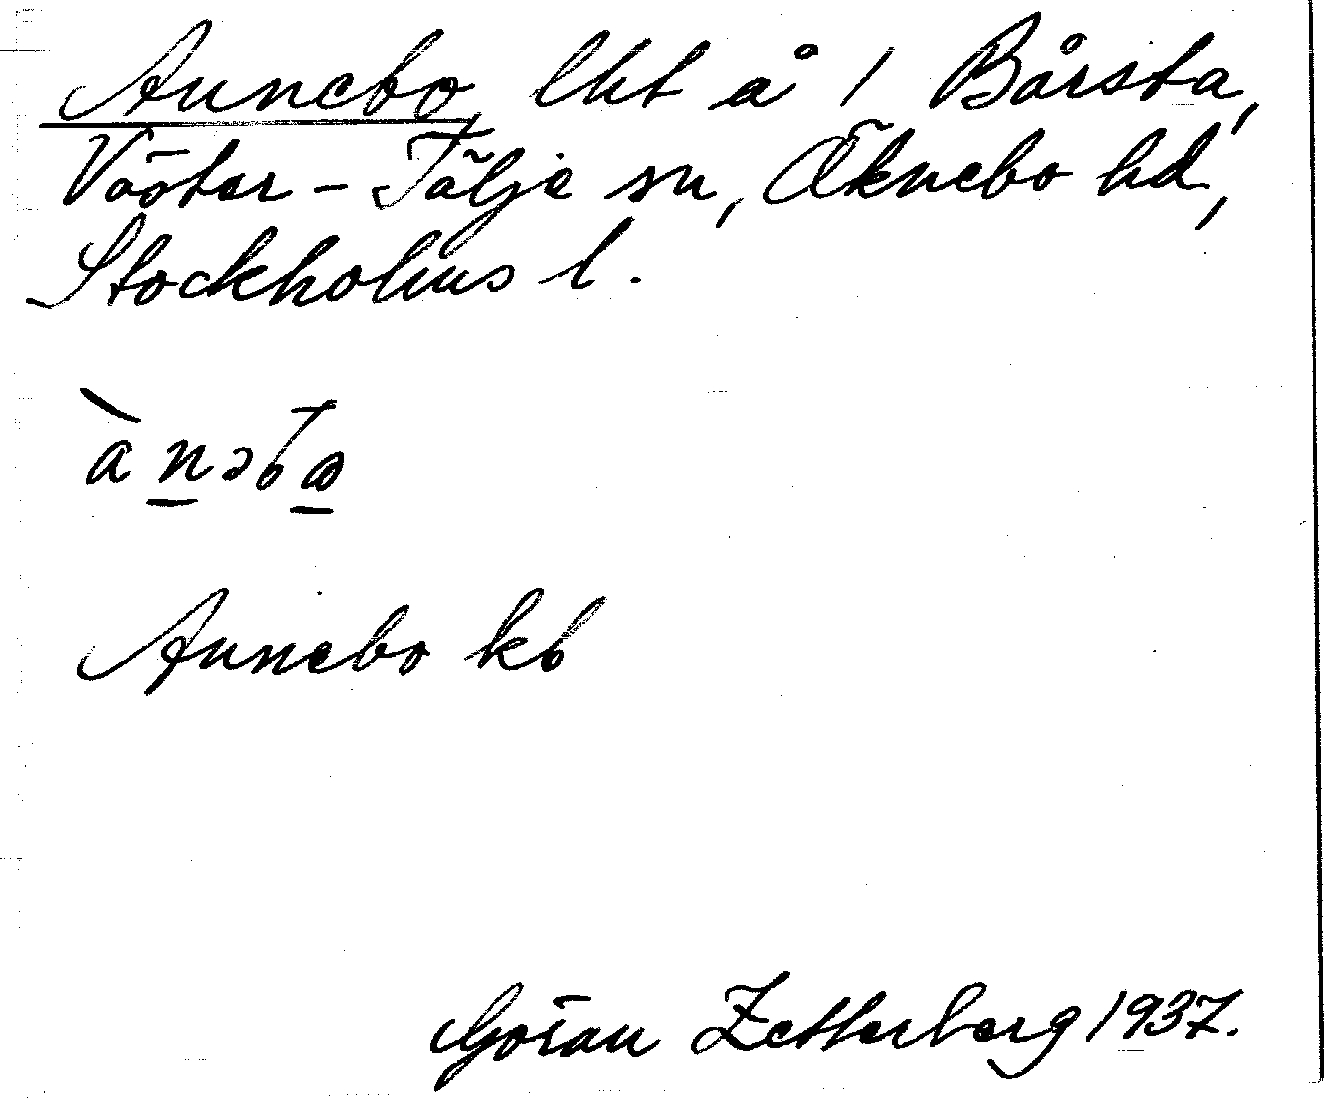 Annebo, lht å 1 Bårsta,
Väster-Tälje sn, Öknebo hd,
Stockholms l.
Annebo kb
Göran Zetterberg 1937.